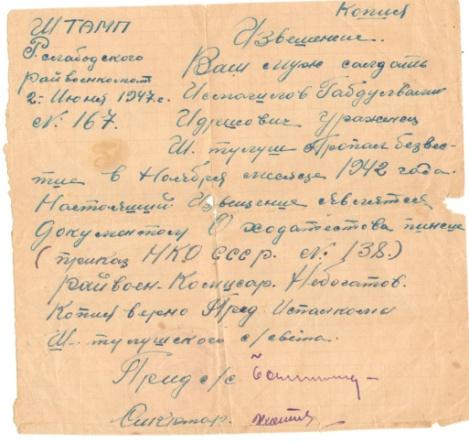 Копия
ШТАМП
Извешение.
Р. Слабодского
райвоенкомат
2 Июня 1947 г.
№ 167.
Ваш муж солдать
Исмагилов
Идрисович Ураженец
Ш. тулуш Пропал безвес-
тие в Ноябре месяце 1942 года.
Настоящий Извищение является
Документом О ходатества пинсие
(приказ НКО СССР. №. 138.)
райвоен-Комисар. Небогатов.
Копия верно Пред Исполкома
Ш. тулушского с/света.
Пред с/с